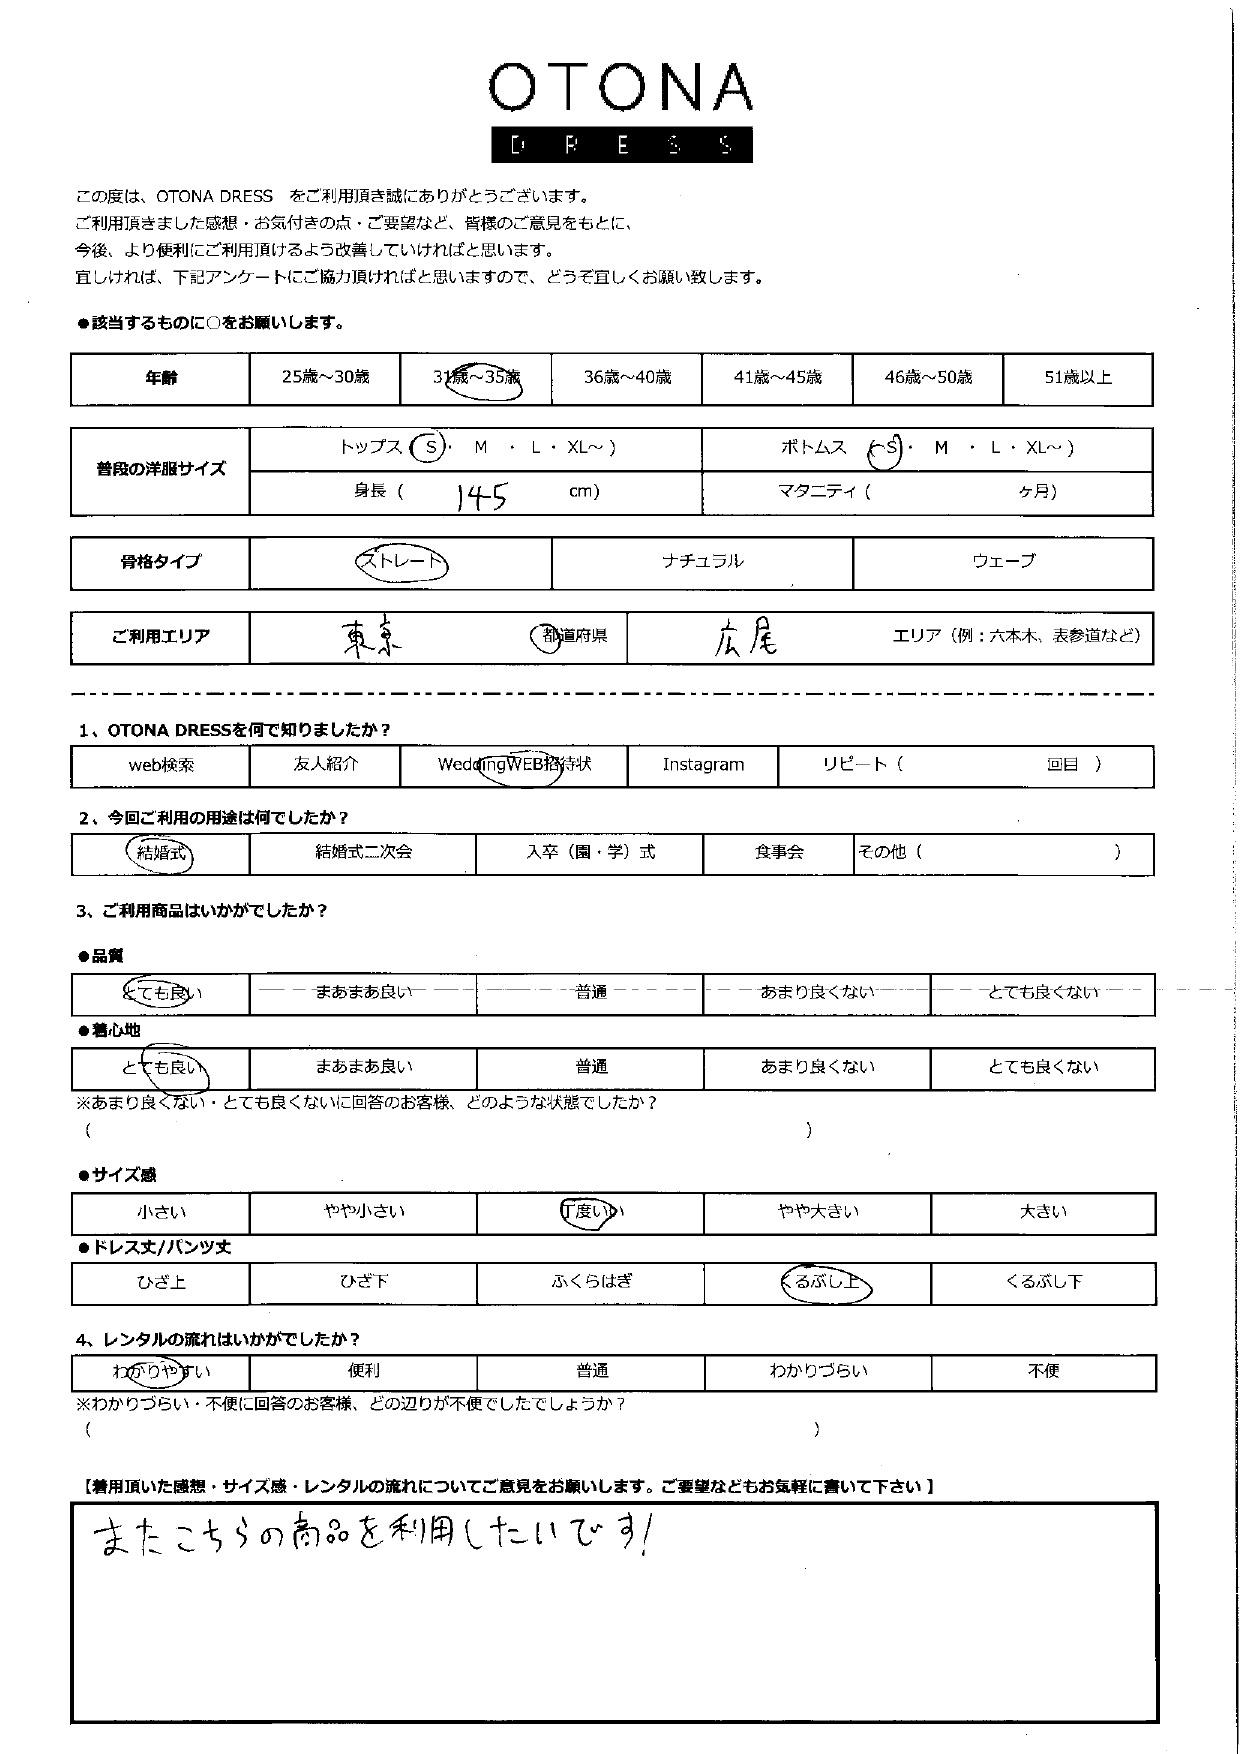 OTONA
DRESS
この度は、OTONA DRESS　をご利用頂き誠にありがとうございます。
ご利用頂きました感想・お気付きの点・ご要望など、皆様のご意見をもとに、
今後、より便利にご利用頂けるよう改善していければと思います。
宜しければ、下記アンケートにご協力頂ければと思いますので、どうぞ宜しくお願い致します。
●該当するものに○をお願いします。
年齢 25歳～30歳 31歳～35歳 36歳～40歳 41歳～45歳 46歳～50歳 51歳以上
普段の洋服サイズ トップス（S・ M ・ L ・ XL～ ） ボトムス （S・ M ・ L ・ XL～ ）
身長（ 145 cm） マタニティ（ ヶ月）
骨格タイプ ストレート ナチュラル ウェーブ
ご利用エリア 東京 都道府県 広尾 エリア（例：六本木、表参道など）
1、OTONA DRESSを何で知りましたか？
web検索 友人紹介 WeddingWEB招待状 Instagram リピート（ 回目 ）
2、今回ご利用の用途は何でしたか？
結婚式 結婚式二次会 入卒（園・学）式 食事会 その他（ ）
3、ご利用商品はいかがでしたか？
●品質
とても良い まあまあ良い 普通 あまり良くない とても良くない
●着心地
とても良い まあまあ良い 普通 あまり良くない とても良くない
※あまり良くない・とても良くないに回答のお客様、どのような状態でしたか？
（ ）
●サイズ感
小さい やや小さい 丁度いい やや大きい 大きい
●ドレス丈/パンツ丈
ひざ上 ひざ下 ふくらはぎ くるぶし上 くるぶし下
4、レンタルの流れはいかがでしたか？
わかりやすい 便利 普通 わかりづらい 不便
※わかりづらい・不便に回答のお客様、どの辺りが不便でしたでしょうか？
（ ）
【着用頂いた感想・サイズ感・レンタルの流れについてご意見をお願いします。ご要望などもお気軽に書いて下さい】
またこちらの商品を利用したいです！